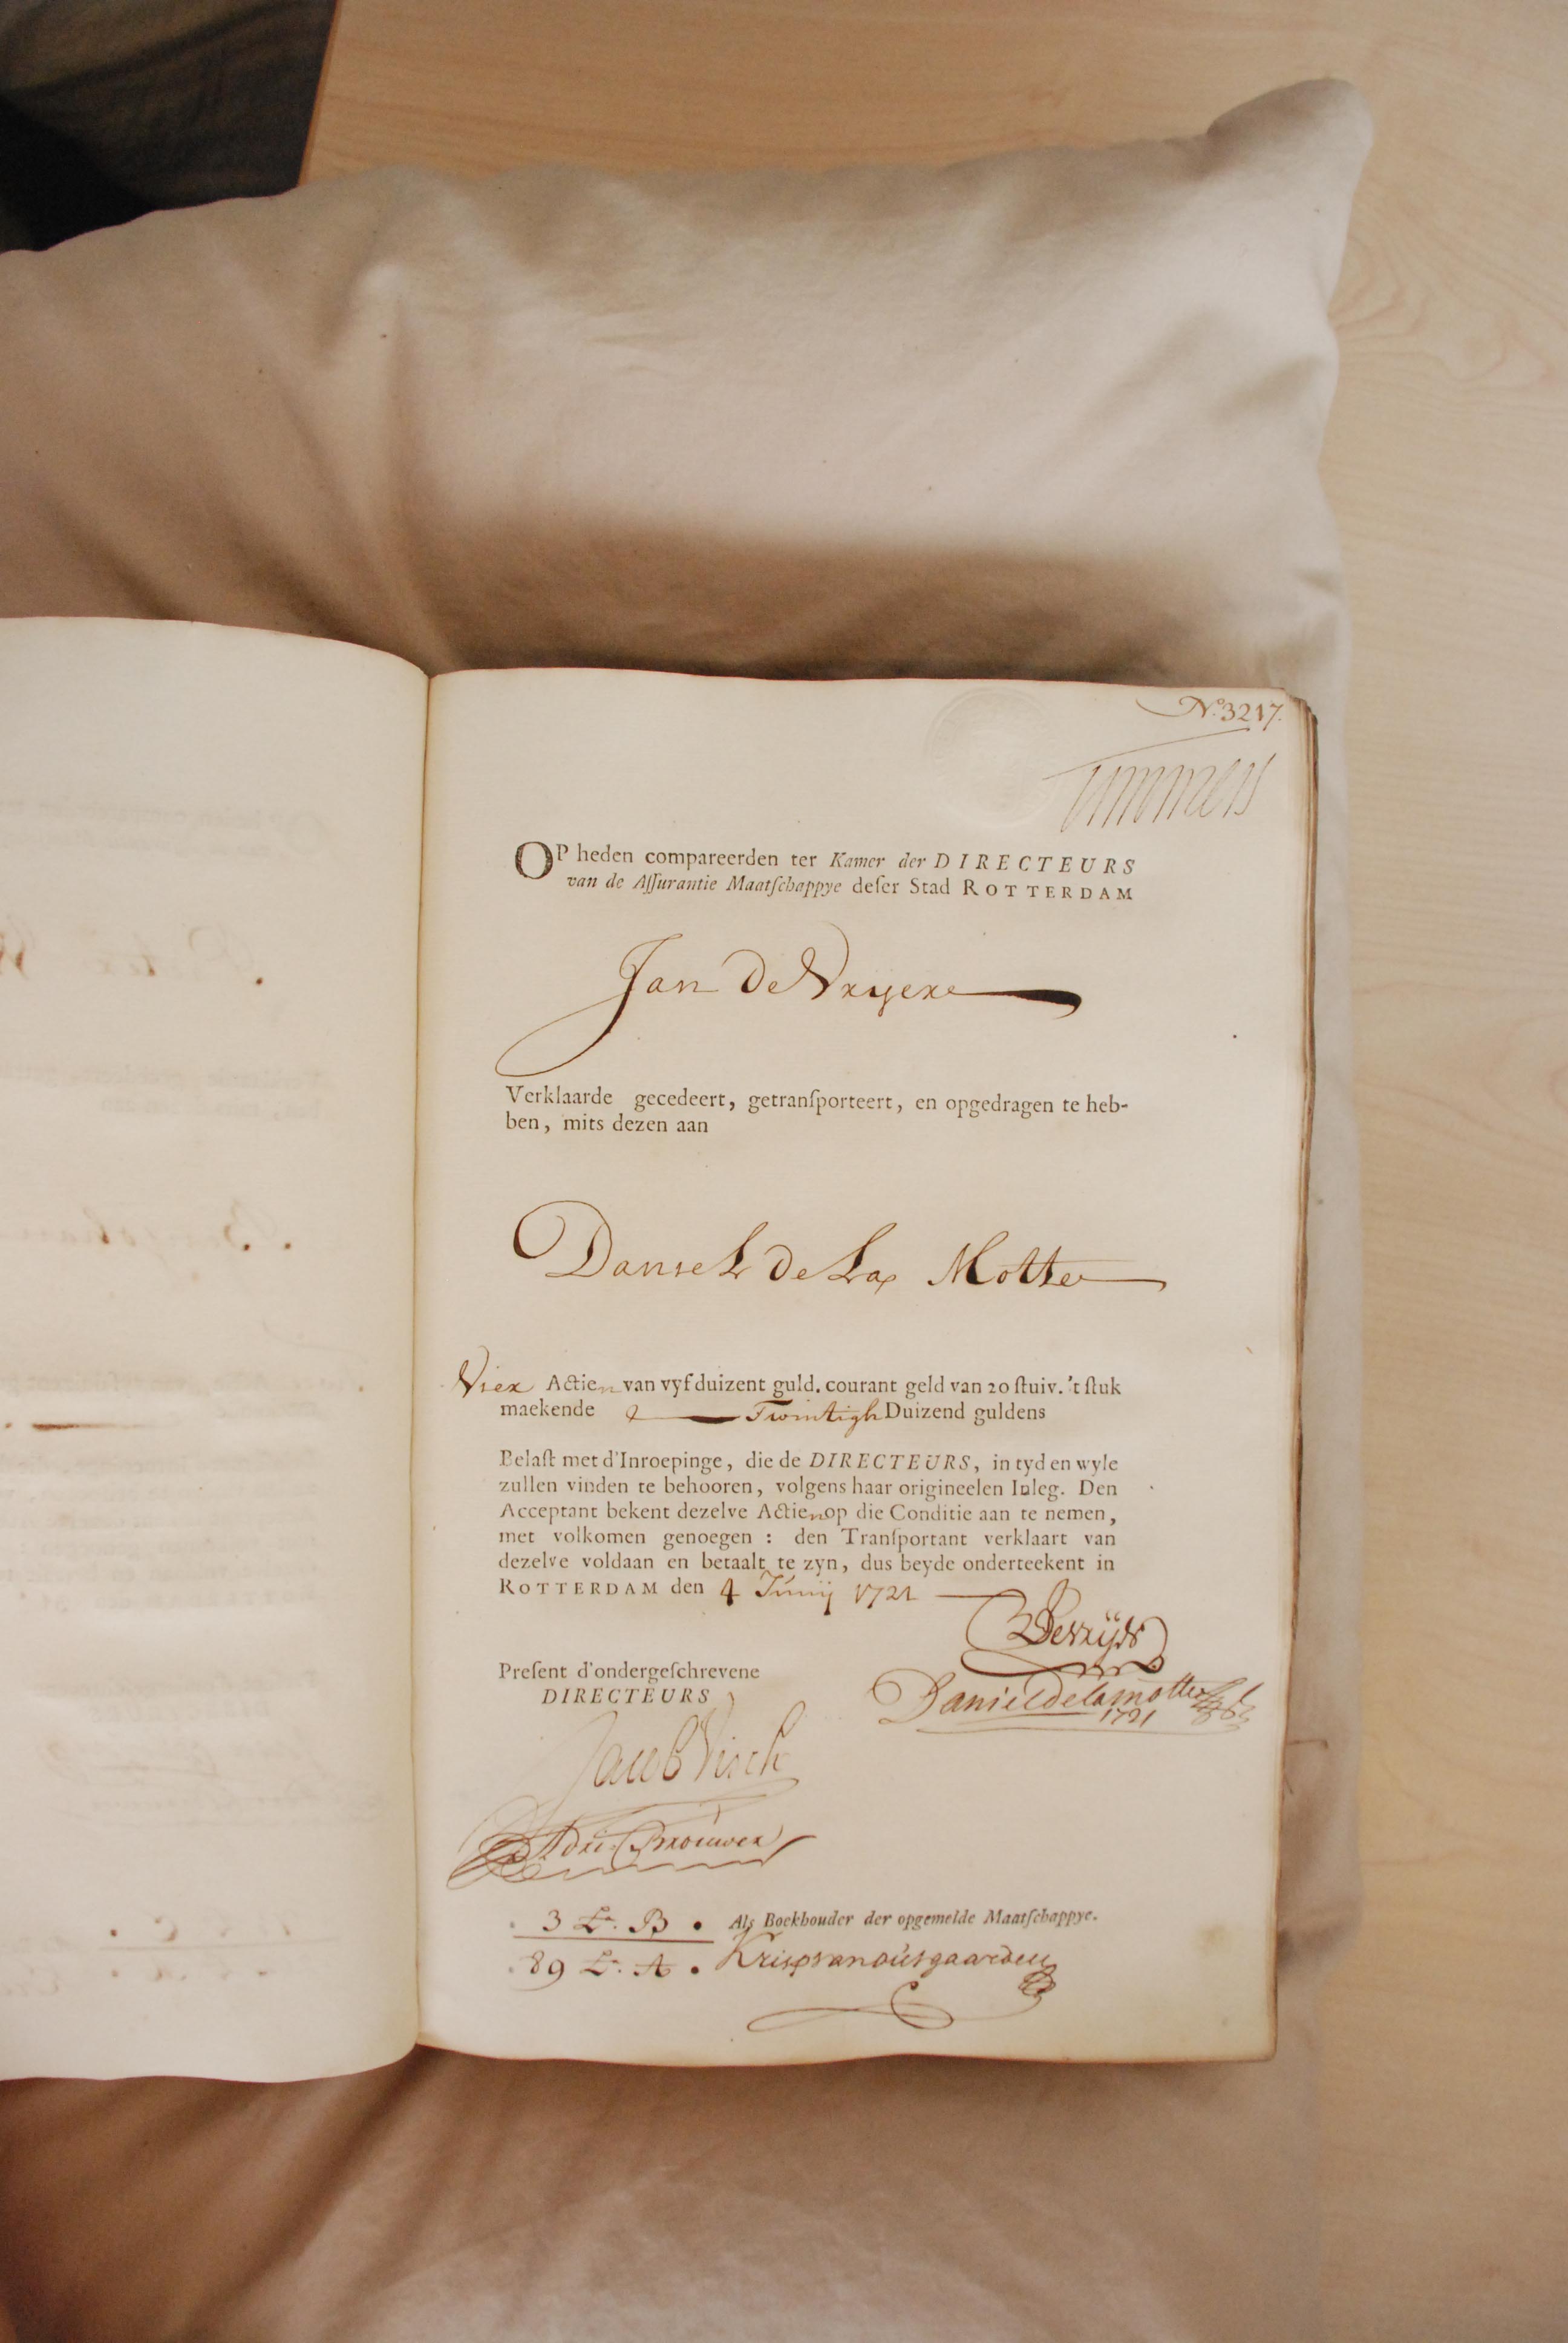 N.º 3217.
Timmers
OP heden compareerden ter Kamer der DIRECTEURS
van de Aſſurantie Maatſchappye deſer Stad ROTTERDAM
Jan De Vryere
Verklaarde gecedeert, getranſporteert, en opgedragen te heb-
ben, mits dezen aan
Daniel de La Motte
Vier Actien van vyf duizent guld. courant geld van 20 ſtuiv. 't ſtuk
maekende Twintigh Duizend guldens
Belaſt met d'Inroepinge, die de DIRECTEURS, in tyd en wyle
zullen vinden te behooren, volgens haar origineelen Inleg. Den
Acceptant bekent dezelve Actien op die Conditie aan te nemen,
met volkomen genoegen : den Tranſportant verklaart van
dezelve voldaan en betaalt te zyn, dus beyde onderteekent in
ROTTERDAM den 4 Junij 1721
Preſent d'ondergeſchrevene
DIRECTEURS
Daniel de la motte
1721
Jacob Visch
Adr: Brouwer
3 Lr. B. Als Boekhouder der opgemelde Maatſchappye.
89 Lr. A. Krisp van outgaarden